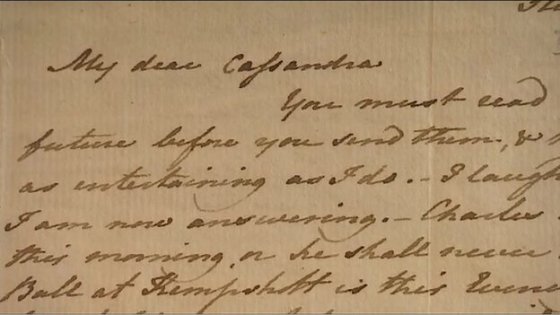 My dear Cassandra
You must read
future before you send them, &
as entertaining as I do. – I laugh
I am now answering. – Charles
this morning, or he shall never
Ball at Kempshott is this Eveni